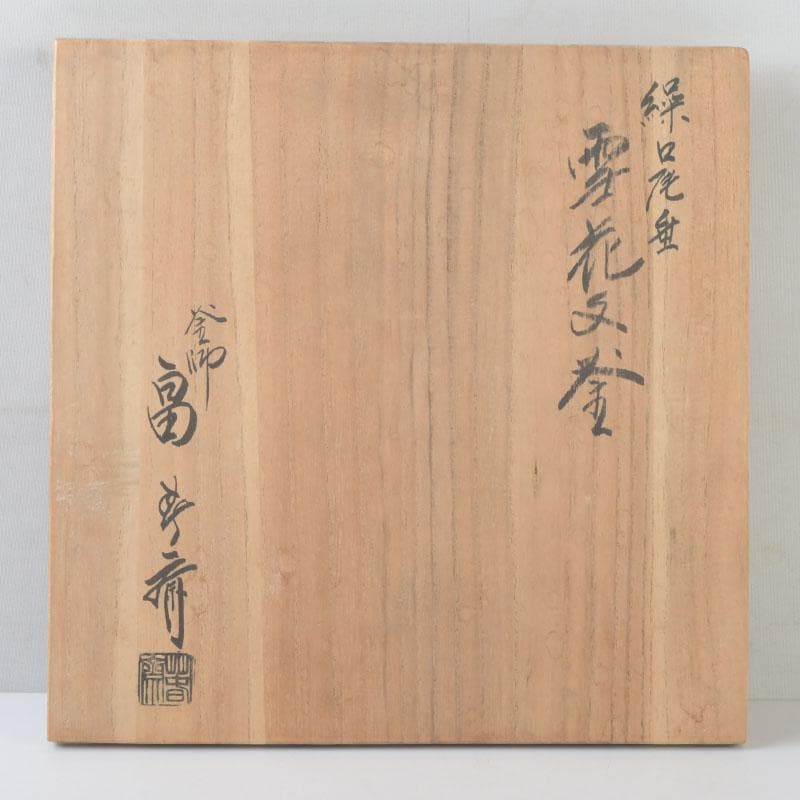 繰口尾垂
雪花文釜
釜師
畠春斎
春斎